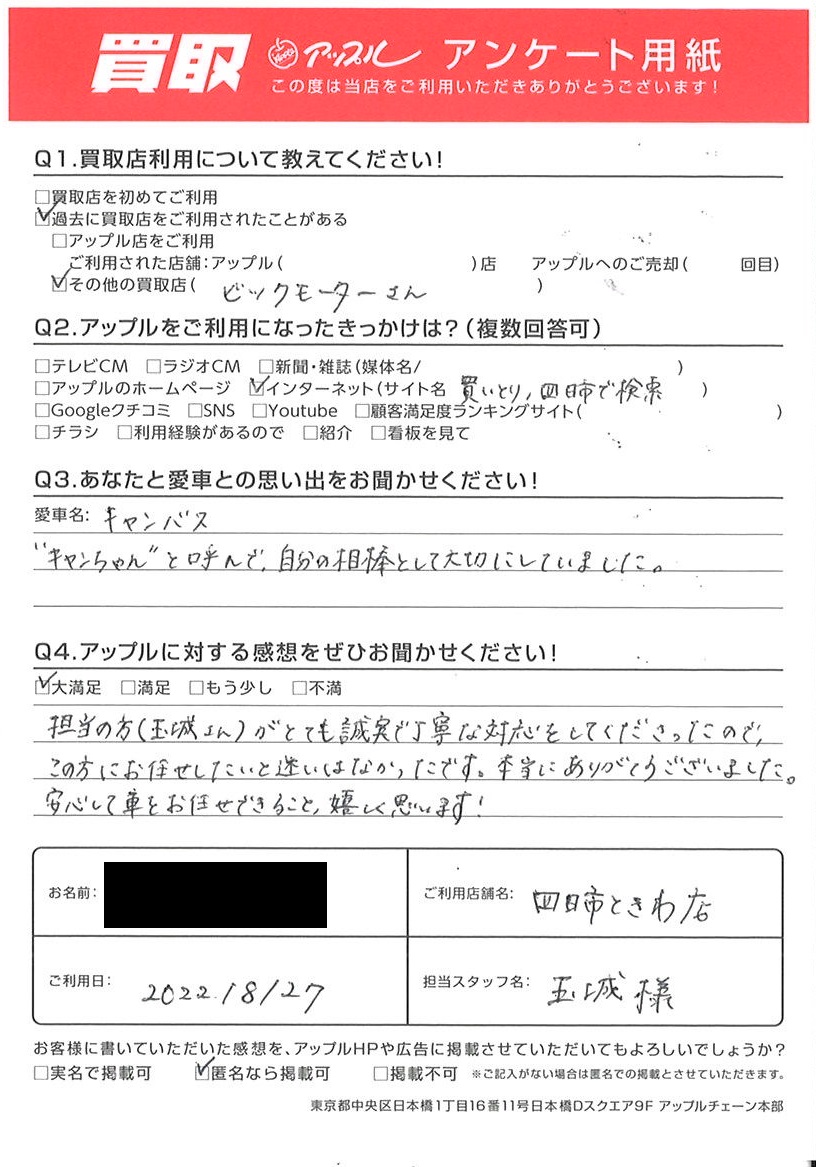 買取 アップル アンケート用紙
この度は当店をご利用いただきありがとうございます！
Q1.買取店利用について教えてください！
□買取店を初めてご利用
☑過去に買取店をご利用されたことがある
□アップル店をご利用
ご利用された店舗：アップル( )店 アップルへのご売却( 回目)
☑その他の買取店( ビックモーターさん )
Q2.アップルをご利用になったきっかけは？（複数回答可）
□テレビCM □ラジオCM □新聞・雑誌（媒体名/ ）
□アップルのホームページ ☑インターネット（サイト名 買いとり，四日市で検索 ）
□Googleクチコミ □SNS □Youtube □顧客満足度ランキングサイト( )
□チラシ □利用経験があるので □紹介 □看板を見て
Q3.あなたと愛車との思い出をお聞かせください！
愛車名: キャンバス
"キャンちゃん"と呼んで、自分の相棒として大切にしていました。
Q4.アップルに対する感想をぜひお聞かせください！
☑大満足 □満足 □もう少し □不満
担当の方(玉城さん)がとても誠実で丁寧な対応をしてくださったので，
この方にお任せしたいと迷いはなかったです。本当にありがとうございました。
安心して車をお任せできること，嬉しく思います！
お名前: ご利用店舗名: 四日市ときわ店
ご利用日: 2022.8/27 担当スタッフ名: 玉城 様
お客様に書いていただいた感想を、アップルHPや広告に掲載させていただいてもよろしいでしょうか？
□実名で掲載可 ☑匿名なら掲載可 □掲載不可 ※ご記入がない場合は匿名での掲載とさせていただきます。
東京都中央区日本橋1丁目16番11号日本橋Dスクエア9F アップルチェーン本部